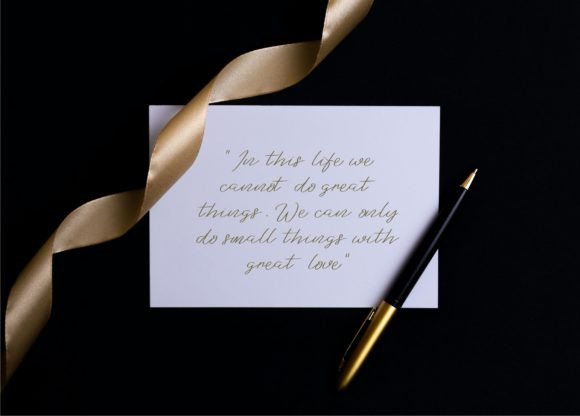 "In this life we
cannot do great
things. We can only
do small things with
great love"